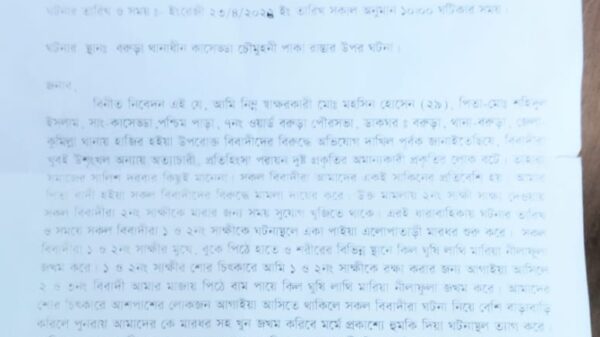 ঘটনার তারিখ ও সময় :- ইংরেজী ২৩/৪/২০২২ ইং তারিখ সকাল অনুমান ১০:০০ ঘটিকার সময়।
ঘটনার স্থানঃ বরুড়া থানাধীন কাসেড্ডা চৌমুহনী পাকা রাস্তার উপর ঘটনা।
জনাব,
বিনীত নিবেদন এই যে, আমি নিম্ন স্বাক্ষরকারী মোঃ মহসিন হোসেন (২৯), পিতা-মোঃ শহিদুল
ইসলাম, সাং-কাসেড্ডা,পশ্চিম পাড়া, ৭নং ওয়ার্ড বরুড়া পৌরসভা, ডাকঘর ঃ বরুড়া, থানা-বরুড়া, জেলা-
কুমিল্লা থানায় হাজির হইয়া উপরোক্ত বিবাদীদের বিরুদ্ধে অভিযোগ দাখিল পূর্বক জানাইতেছিযে, বিবাদীরা
খুবই উশৃংখল অন্যায় অত্যাচারী, প্রতিহিংসা পরায়ন দুষ্ট প্রকৃতির অমান্যকারী প্রকৃতির লোক বটে। তাহারা
সমাজের সালিশ দরবার কিছুই মানেনা। সকল বিবাদীরা আমাদের একই সাকিনের প্রতিবেশি হয়। আমার
পিতা বাদী হইয়া সকল বিবাদীদের বিরুদ্ধে মামলা দায়ের করে। উক্ত মামলায় ২নং সাক্ষী সাক্ষ্য দেওয়ায়
সকল বিবাদীরা ২নং সাক্ষীকে মারার জন্য সময় সুযোগ খুজিতে থাকে। এরই ধারাবাহিকায় ঘটনার তারিখ
ও সময়ে সকল বিবাদীরা ১ ও ২নং সাক্ষীকে ঘটনাস্থলে একা পাইয়া এলোপাতাড়ী মারধর শুরু করে। সকল
বিবাদীরা ১ ও ২নং সাক্ষীর মুখে, বুকে পিঠে হাতে ও শরীরের বিভিন্ন স্থানে কিল ঘুষি লাথি মারিয়া নীলাফুলা
জখম করে। ১ ও ২নং সাক্ষীর শোর চিৎকারে আমি ১ ও ২নং সাক্ষীকে রক্ষা করার জন্য আগাইয়া আসিলে
২ ও ৩নং বিবাদী আমার মাজায় পিঠে বাম পায়ে কিল ঘুষি লাথি মারিয়া নীলাফুলা জখম করে। আমাদের
শোর চিৎকারে আশপাশের লোকজন আগাইয়া আসিতে থাকিলে সকল বিবাদীরা ঘটনা নিয়ে বেশি বাড়াবাড়ি
করিলে পুনরায় আমাদের কে মারধর সহ খুন জখম করিবে মর্মে প্রকাশ্যে হুমকি দিয়া ঘটনাস্থল ত্যাগ করে।